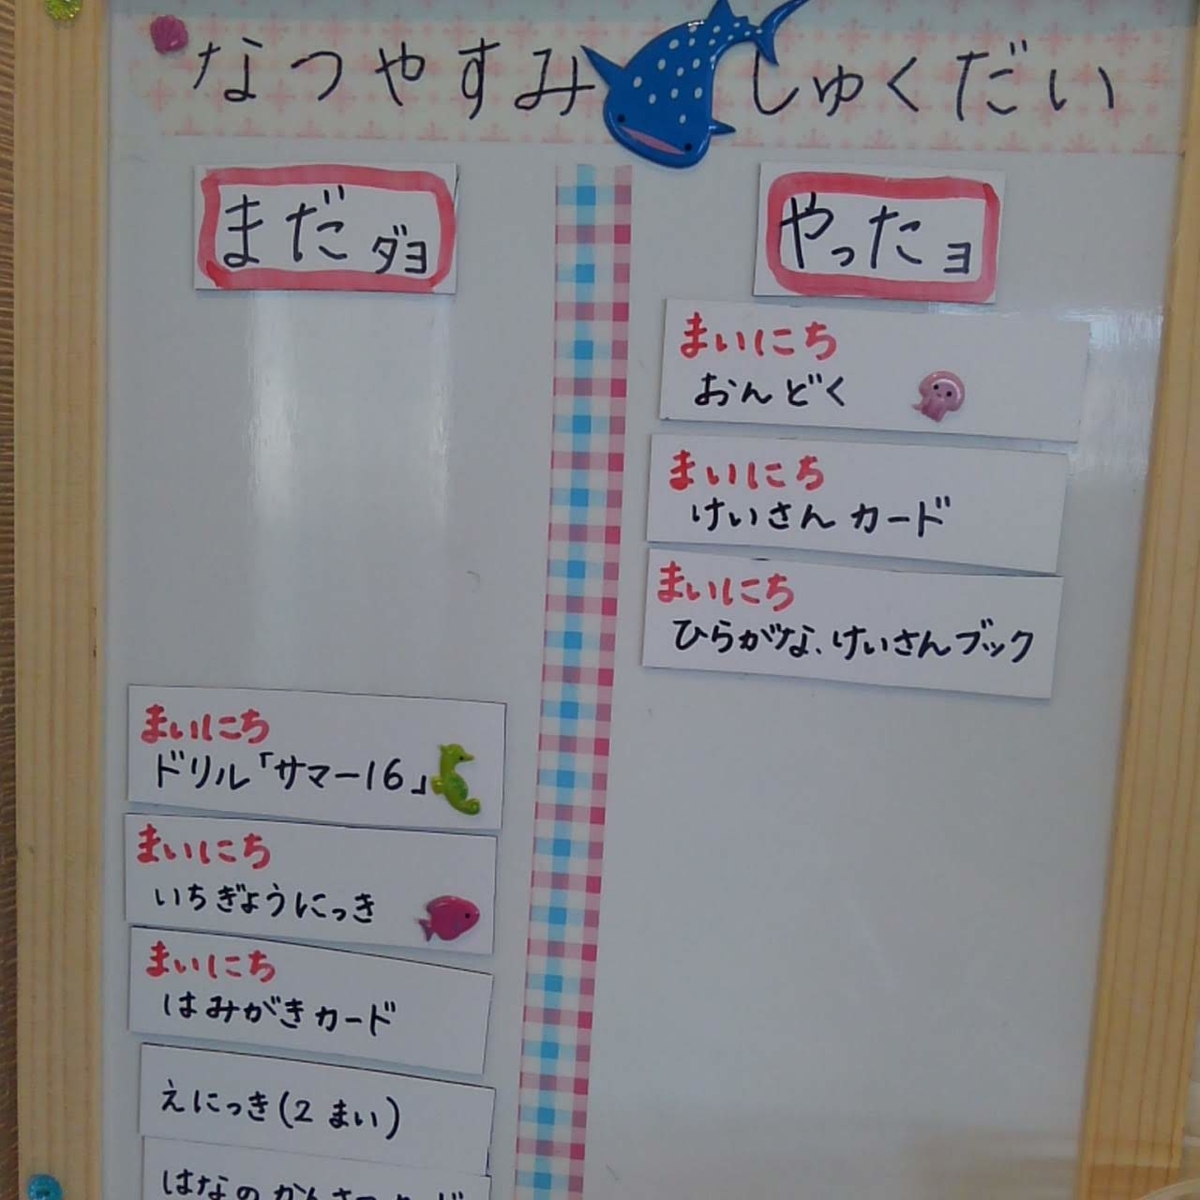 なつやすみ しゅくだい
まだダヨ
やったヨ
まいにち
おんどく
まいにち
けいさんカード
まいにち
ひらがな、けいさんブック
まいにち
ドリル「サマー16」
まいにち
いちぎょうにっき
まいにち
はみがきカード
えにっき(2まい)
はなの